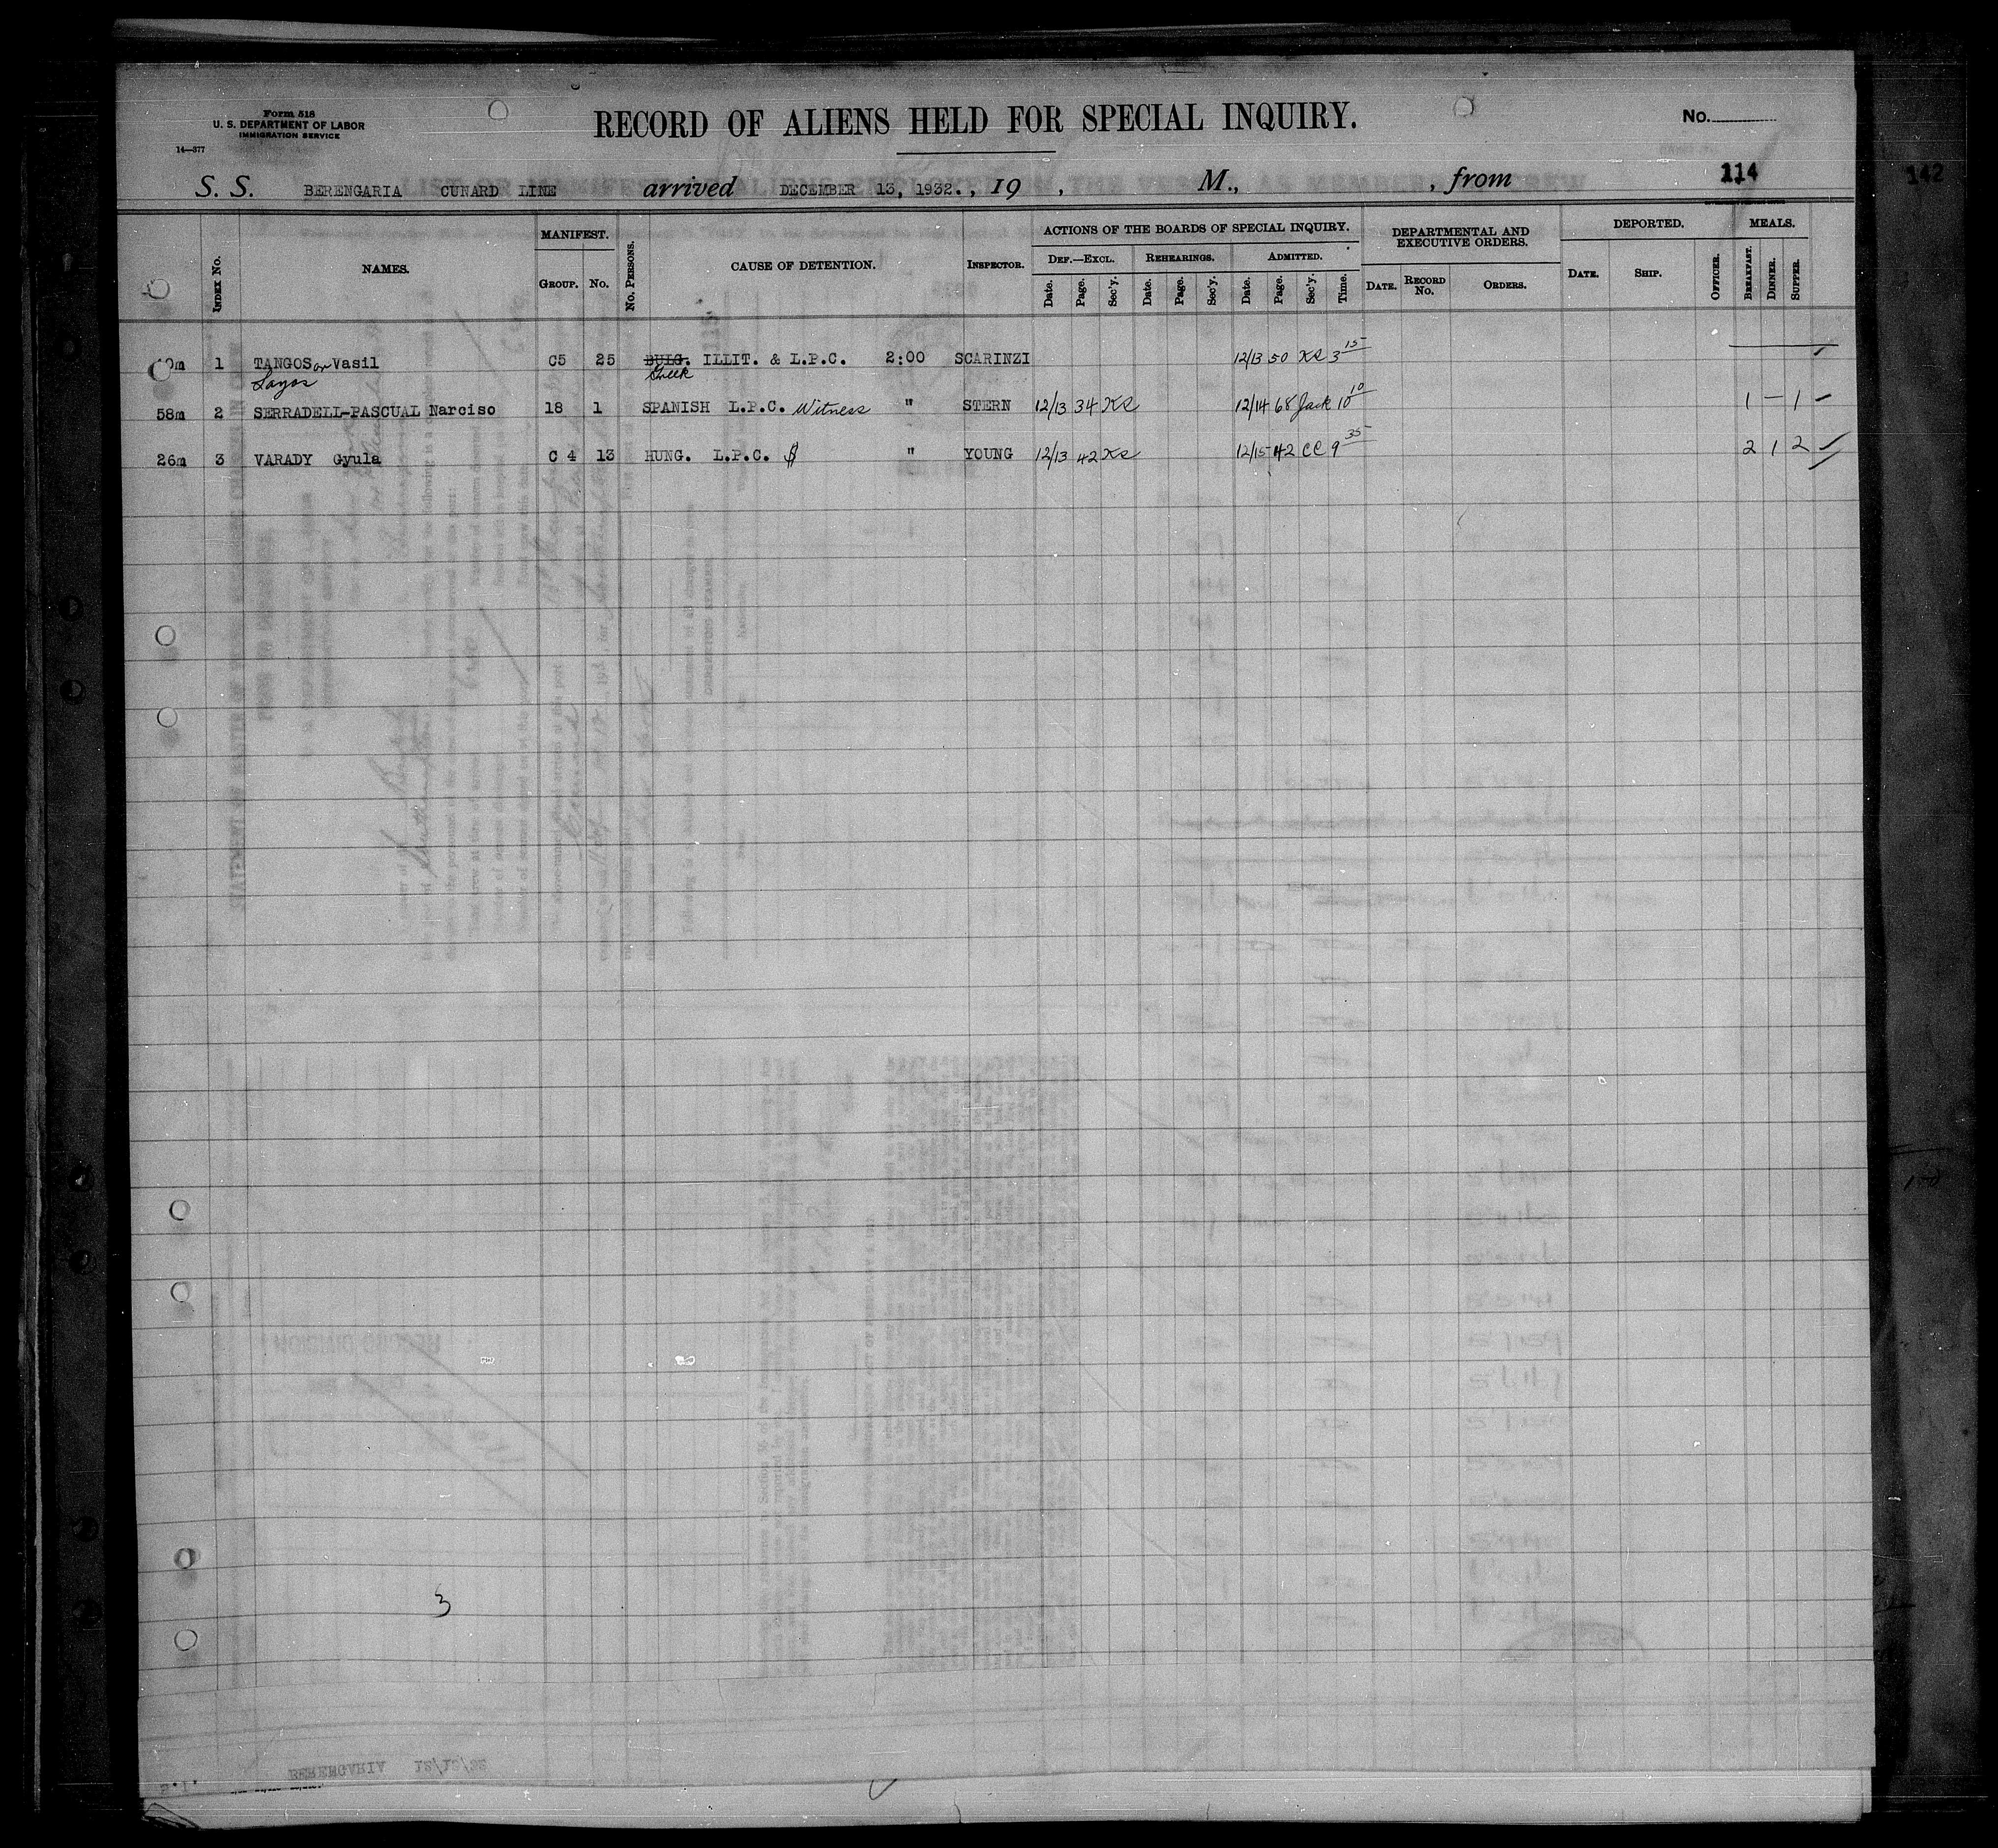 Form 518
U. S. DEPARTMENT OF LABOR
IMMIGRATION SERVICE
14—377
RECORD OF ALIENS HELD FOR SPECIAL INQUIRY.
No.
114
142
S. S. BERENGARIA CUNARD LINE arrived DECEMBER 13, 1932., 19 , M., , from
INDEX No. NAMES. MANIFEST. GROUP. No. No. PERSONS. CAUSE OF DETENTION. INSPECTOR. ACTIONS OF THE BOARDS OF SPECIAL INQUIRY. DEPARTMENTAL AND EXECUTIVE ORDERS. DEPORTED. MEALS.
DEF.—EXCL. REHEARINGS. ADMITTED.
Date. Page. Sec'y. Date. Page. Sec'y. Date. Page. Sec'y. Time. DATE. RECORD No. ORDERS. DATE. SHIP. OFFICER. BREAKFAST. DINNER. SUPPER.
1 TANGOS or Vasil C5 25 BULG. ILLIT. & L.P.C. 2:00 SCARINZI 12/13 50 KR 3 15
Greek
58m 2 SERRADELL-PASCUAL Narciso 18 1 SPANISH L.P.C. Witness " STERN 12/13 34 KR 12/14 68 Jack 10 10 1 — 1
26m 3 VARADY Gyula C 4 13 HUNG. L.P.C. $ " YOUNG 12/13 42 KR 12/15 42 CC 9 35 2 1 2
3
BERENGARIA 12/13/32